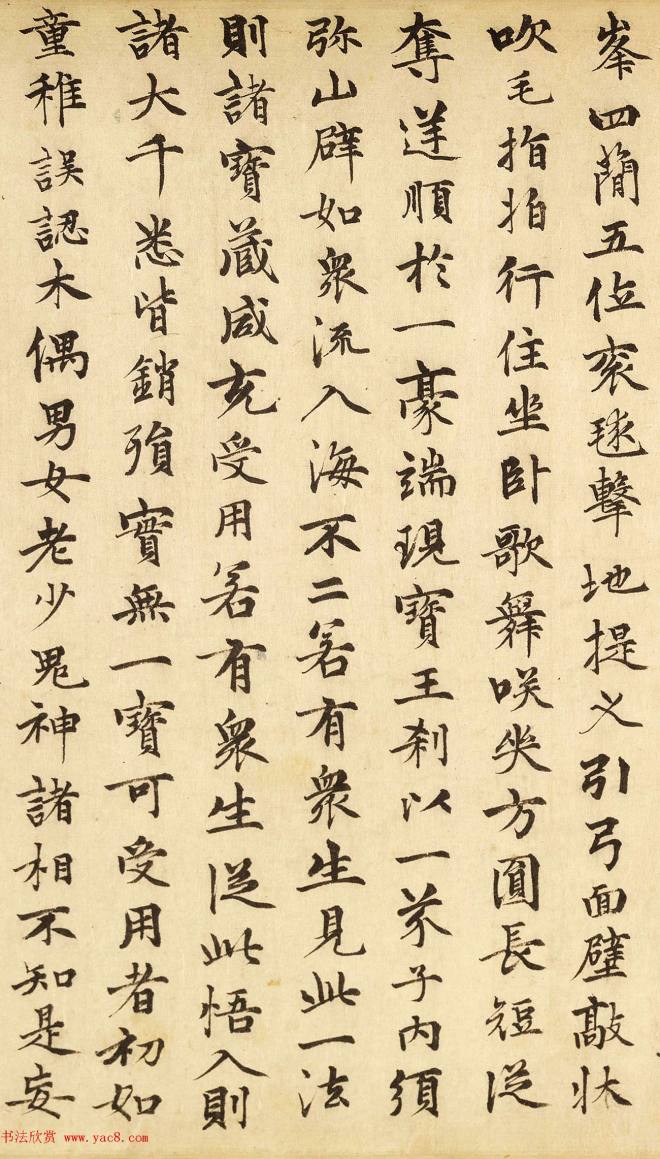 峯四蕳五位衮毬擊地提义引弓面壁敲牀
吹毛指拍行住坐卧歌舞咲哭方圓長短從
奪逆順於一豪端現寶王刹以一芥子内須
弥山辟如衆流入海不二若有衆生見此一法
則諸寶藏咸充受用若有衆生從此悟入則
諸大千悉皆銷殞實無一寶可受用者初如
童稚誤認木偶男女老少鬼神諸相不知是妄
书法欣赏 www.yac8.com